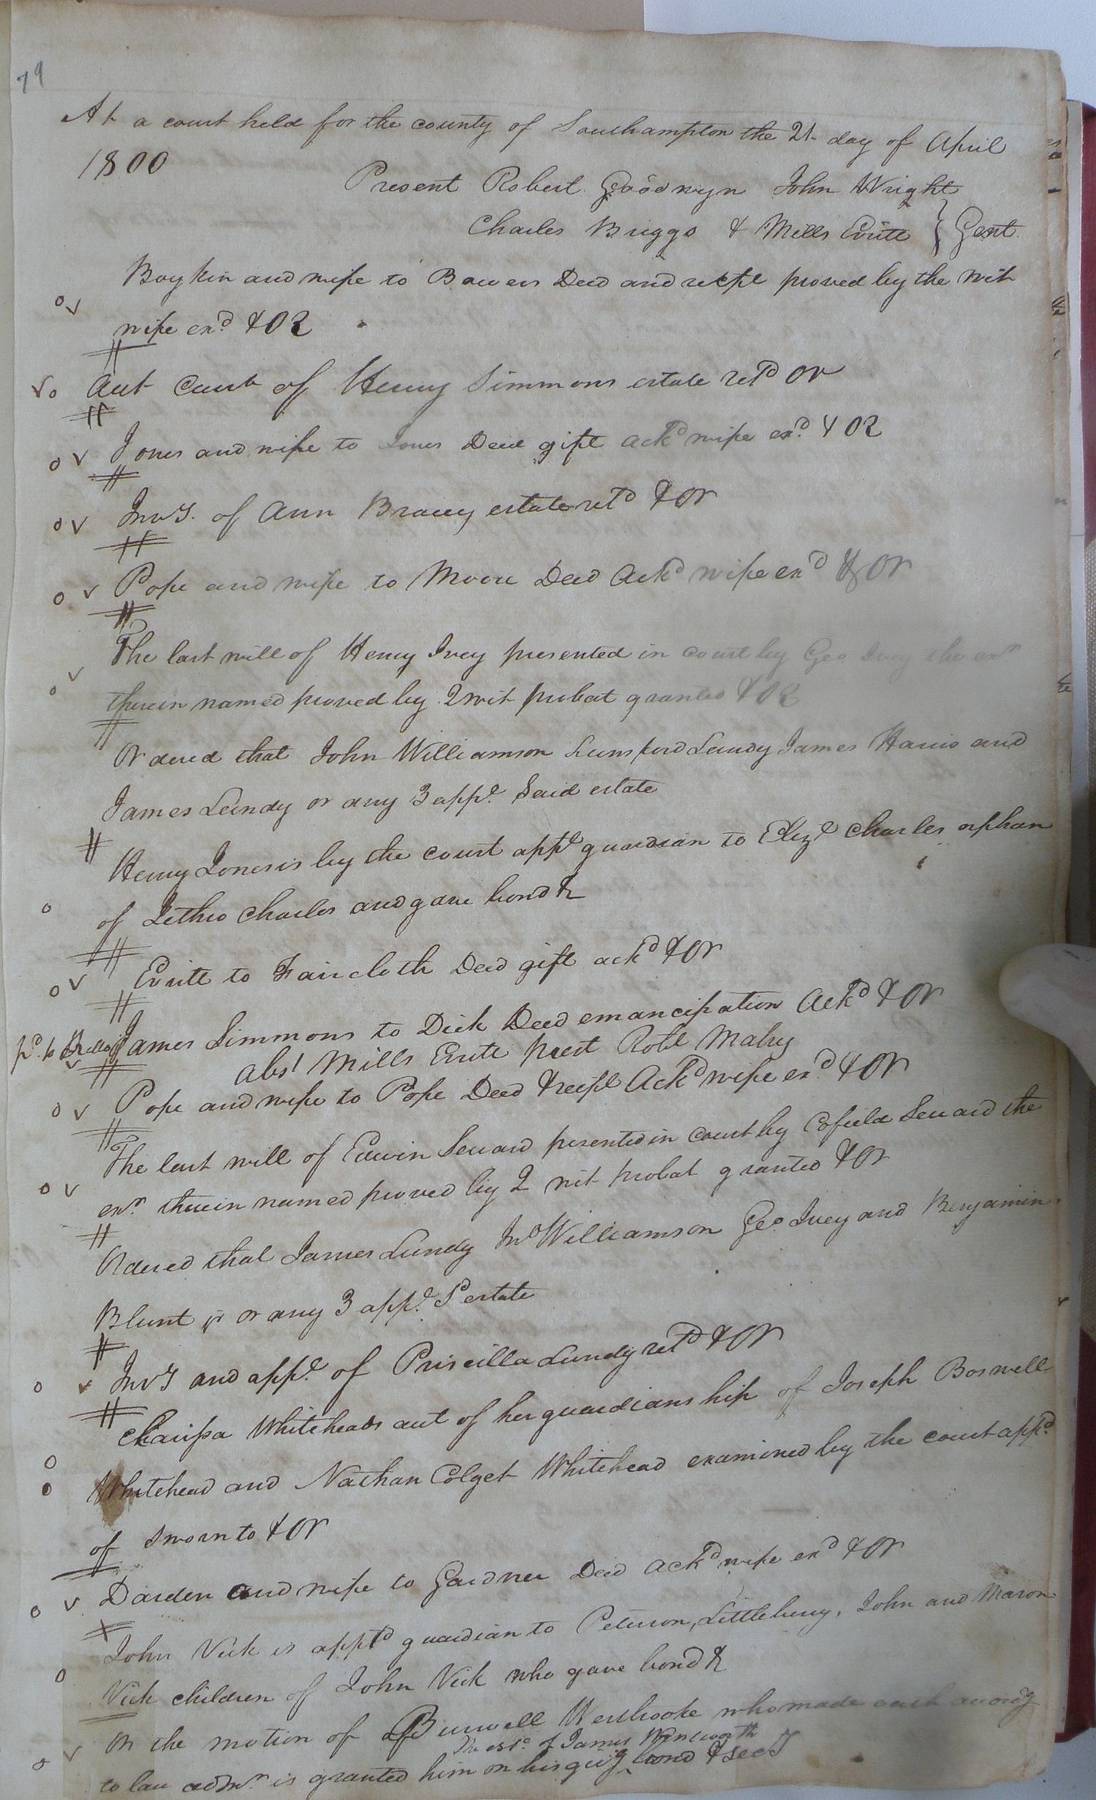 79
At a court held for the county of Southampton the 21 day of April
1800
Present Robert Goodwyn John Wright
Charles Briggs & Mills Evitt } Gent
Boykin and wife to Bowers Deed and recpt proved by the wit
wife exd & OR
Aut Curt of Henry Simmons estate retd Or
Jones and wife to Jones Deed gift ackd wife exd & OR
InvY. of Ann Bracey estate retd & Or
Pope and wife to Moore Deed Ackd wife exd & Or
The last will of Henry Ivey presented in court by Geo Ivey the exr
therein named proved by 2 wit probat granted & OR
Ordered that John Williamson Lunsford Lundy James Harris and
James Lundy or any 3 appe. Said estate
Henry Jones is by the court appd guardian to Eliza Charles orphan
of Jethro Charles and gave bond &
Evitt to Faircloth Deed gift ackd & Or
James Simmons to Dick Deed emancipation Ackd & Or
abst Mills Evitt prest Robt Mabry
Pope and wife to Pope Deed & recpt Ackd wife exd & Or
The last will of Edwin Seward presented in court by Cofield Seward the
exr. therein named proved by 2 wit probat granted & Or
Ordered that James Lundy Jno Williamson Geo Ivey and Benjamin
Blunt jr or any 3 appe. Sd estate
InvY and appt. of Priscilla Lundy retd & Or
Charissa Whiteheads aut of her guardianship of Joseph Boswell
Whitehead and Nathan Colget Whitehead examined by the court appd
of Sworn to & Or
Darden and wife to Gardner Deed Ackd wife exd & Or
John Vick is apptd guardian to Peterson, Littlebury, John and Mason
Vick children of John Vick who gave bond &
On the motion of Burwell Westbrooke who made oath accordg
the esta. of James Wentworth
to law admr. is granted him on his givg bond & secY